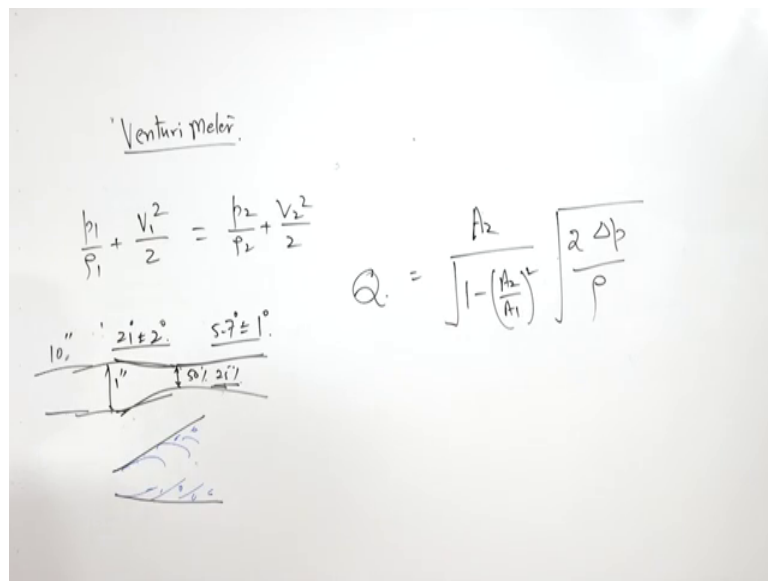 Venturi Meter.
p1/ρ1 + V1²/2 = p2/ρ2 + V2²/2
Q. = A2/√(1-(A2/A1)²) √(2 Δp/ρ)
10" 21°±2° 5-7°±1°
1" 50% 25%